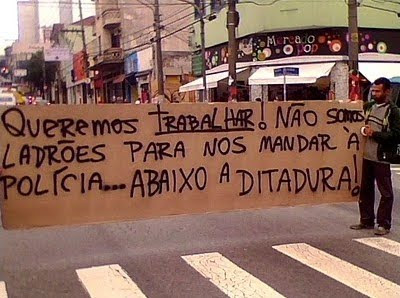 Mercado Pop
QUEREMOS TRABALHAR! NÃO SOMOS
LADRÕES PARA NOS MANDAR À
POLÍCIA... ABAIXO A DITADURA!